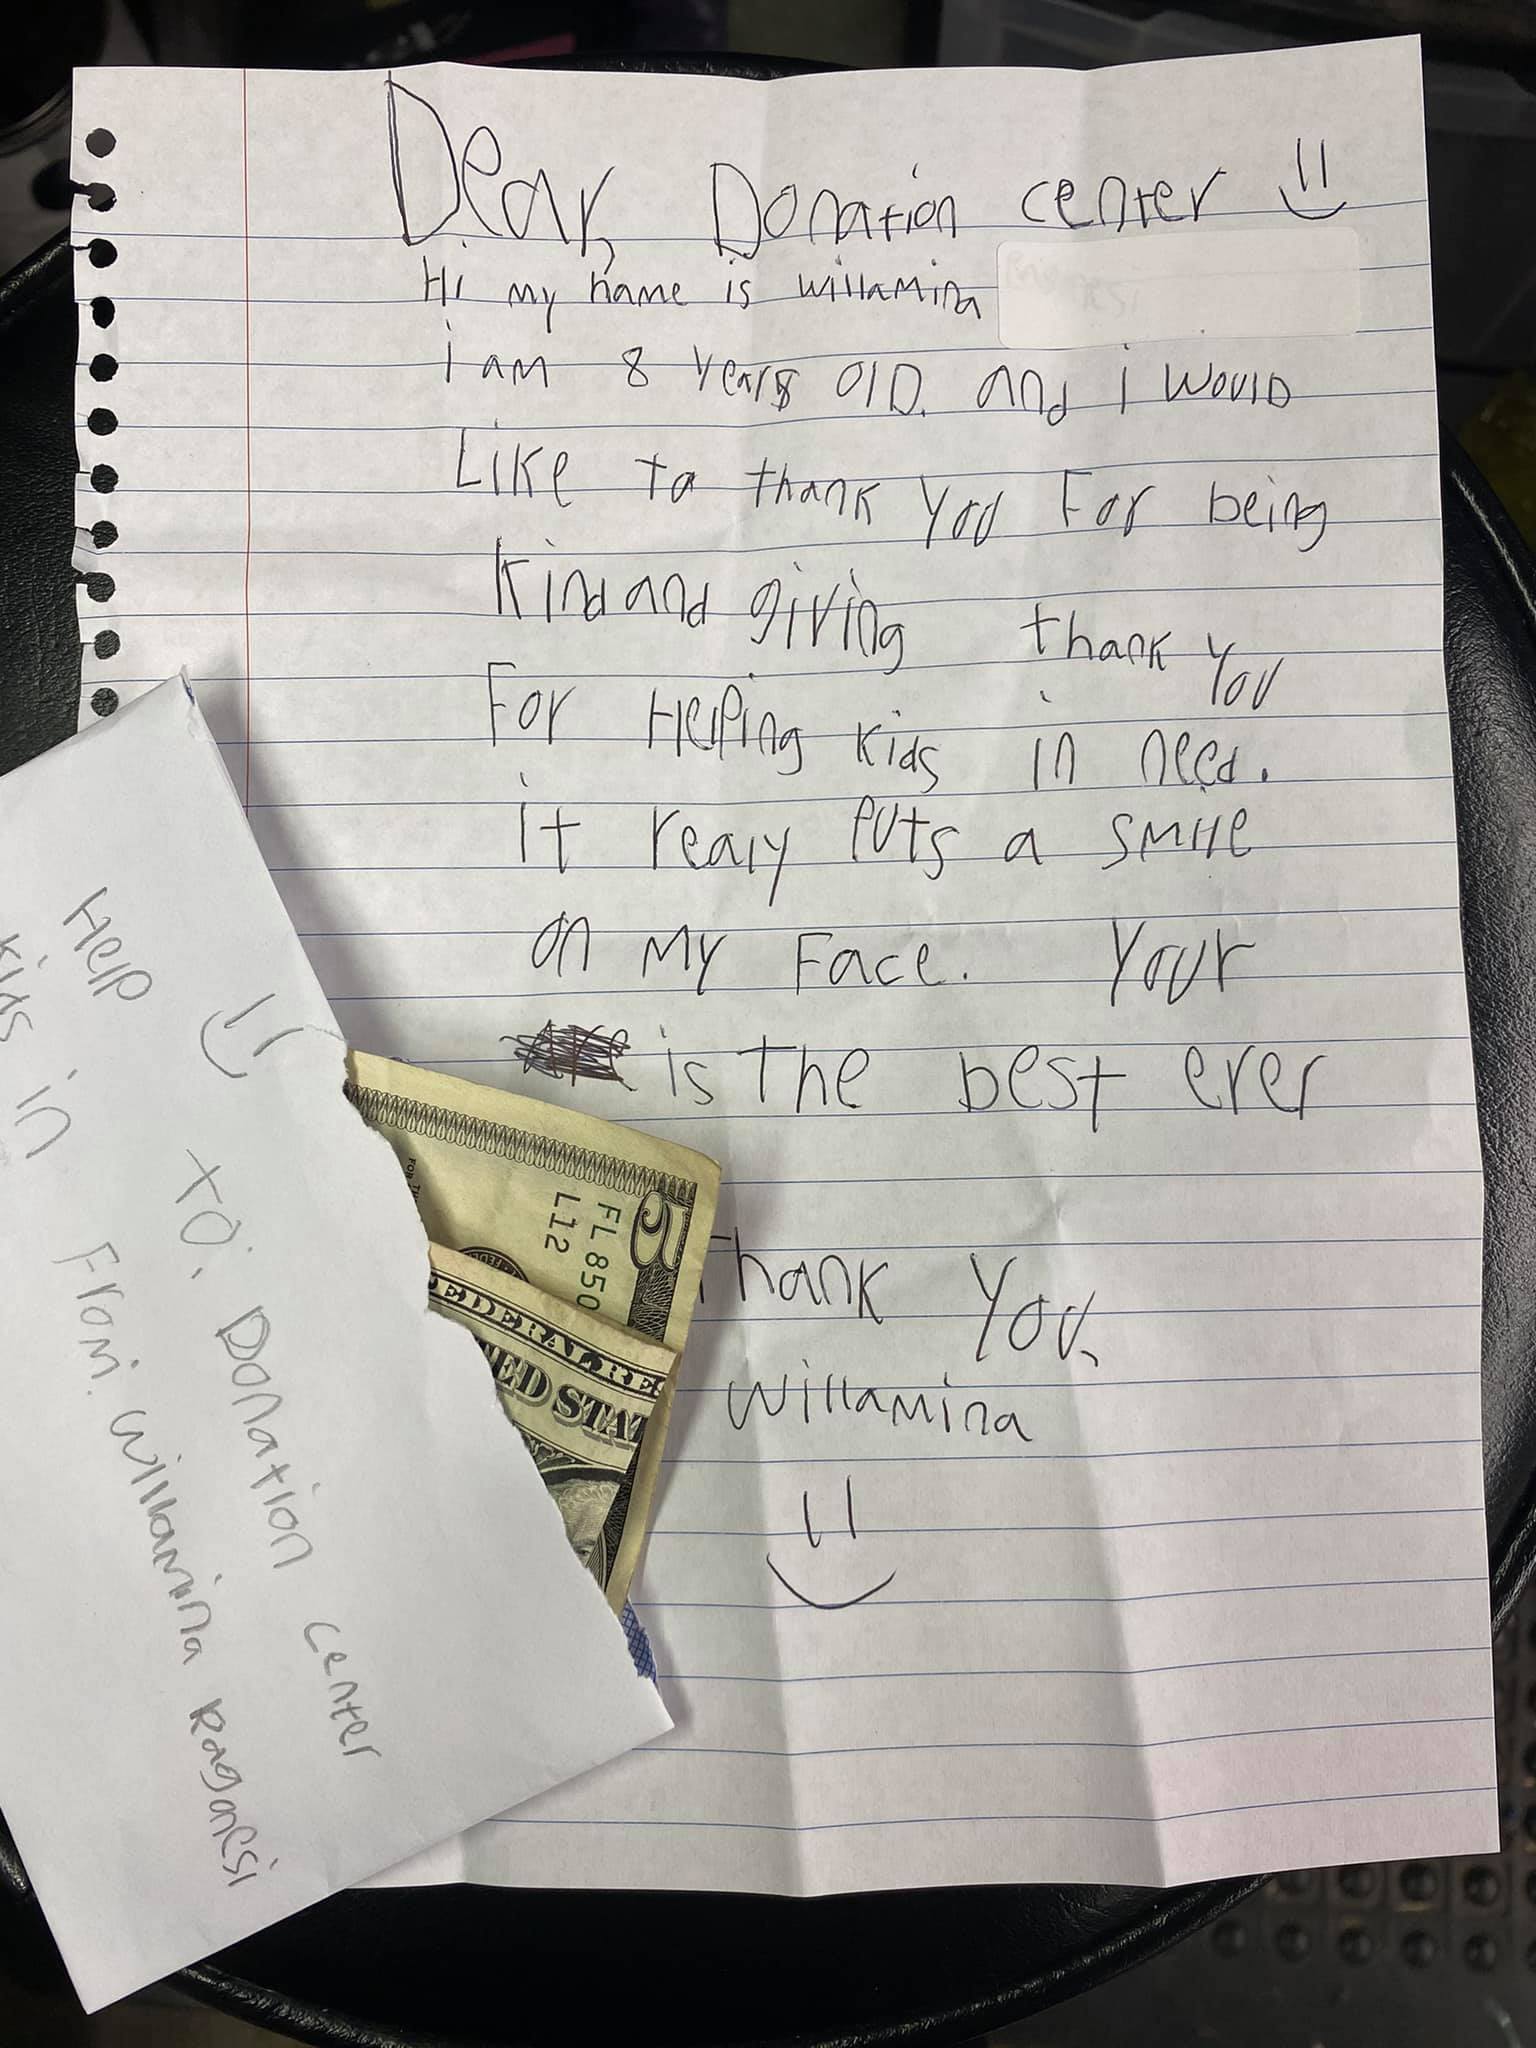 Dear, Donation center
Hi my name is willamina
i am 8 years old. and i would
Like to thank you For being
Kind and giving thank you
For Helping kids in need.
it realy puts a smile
on my Face. Your
is the best ever
Thank you,
willamina
Help
kids in
To: Donation center
From: willamina Ragonesi
5
FL 850
L12
FEDERAL RES
TED STAT